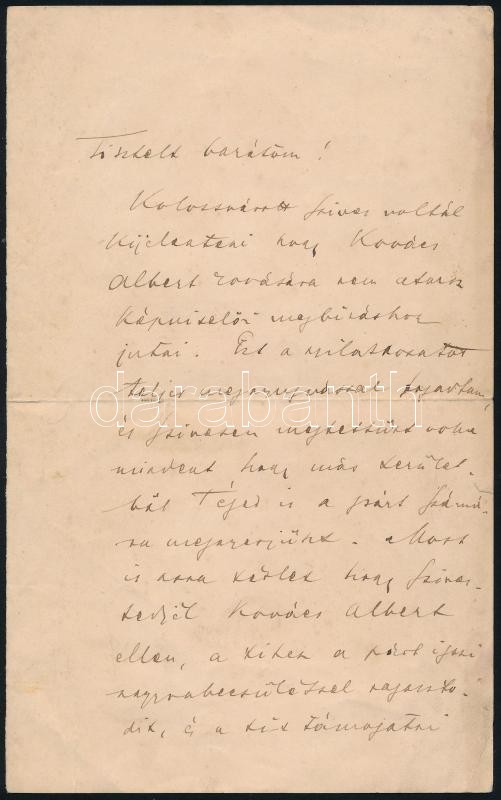 Tisztelt barátom!
Kolossvárott szives voltál
kijelenteni hogy Kovács
Albert rovására nem akarsz
képviselői megbizáshoz
jutni. Ezt a nyilatkozatot
teljes megnyugvással fogadtam,
darabanth
és szivesen megtettünk volna
mindent hogy más kerület-
ből Téged is a párt számá-
ra megnyerjünk. Most
is arra kérlek hogy
Kovács Albert
ellen, a kihez a párt igazi
nagyrabecsüléssel ragaszko-
dik, és a kit támogatni